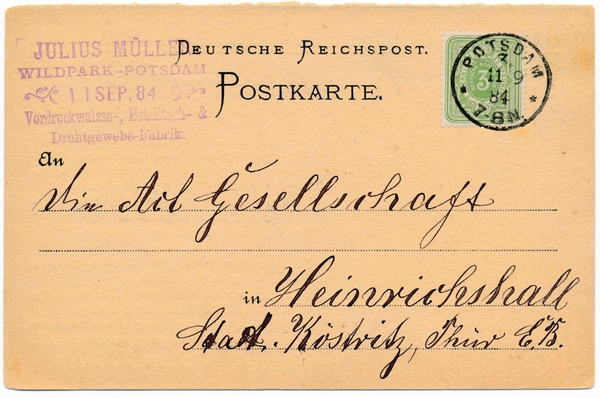 JULIUS MÜLLER
WILDPARK-POTSDAM
11 SEP. 84
Vordruckwalzen-, Metalltuch- &
Drahtgewebe-Fabrik.
DEUTSCHE REICHSPOST.
POSTKARTE.
3
POTSDAM
3.
11 9
84
7-8N.
An
die Act Gesellschaft
in Heinrichshall
Stat. Köstritz, Thür E.B.